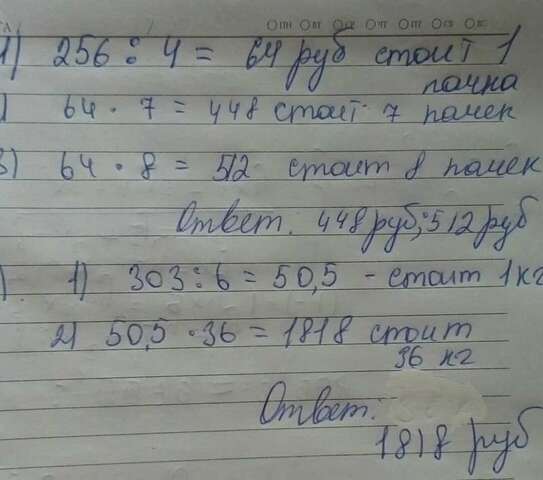 ПН ВТ СР ЧТ ПТ СБ ВС
1) 256 : 4 = 64 руб стоит 1
пачка
) 64 · 7 = 448 стоит 7 пачек
3) 64 · 8 = 512 стоит 8 пачек
Ответ. 448 руб; 512 руб
) 1) 303 : 6 = 50,5 - стоит 1 кг
2) 50,5 · 36 = 1818 стоит
36 кг
Ответ:
1818 руб